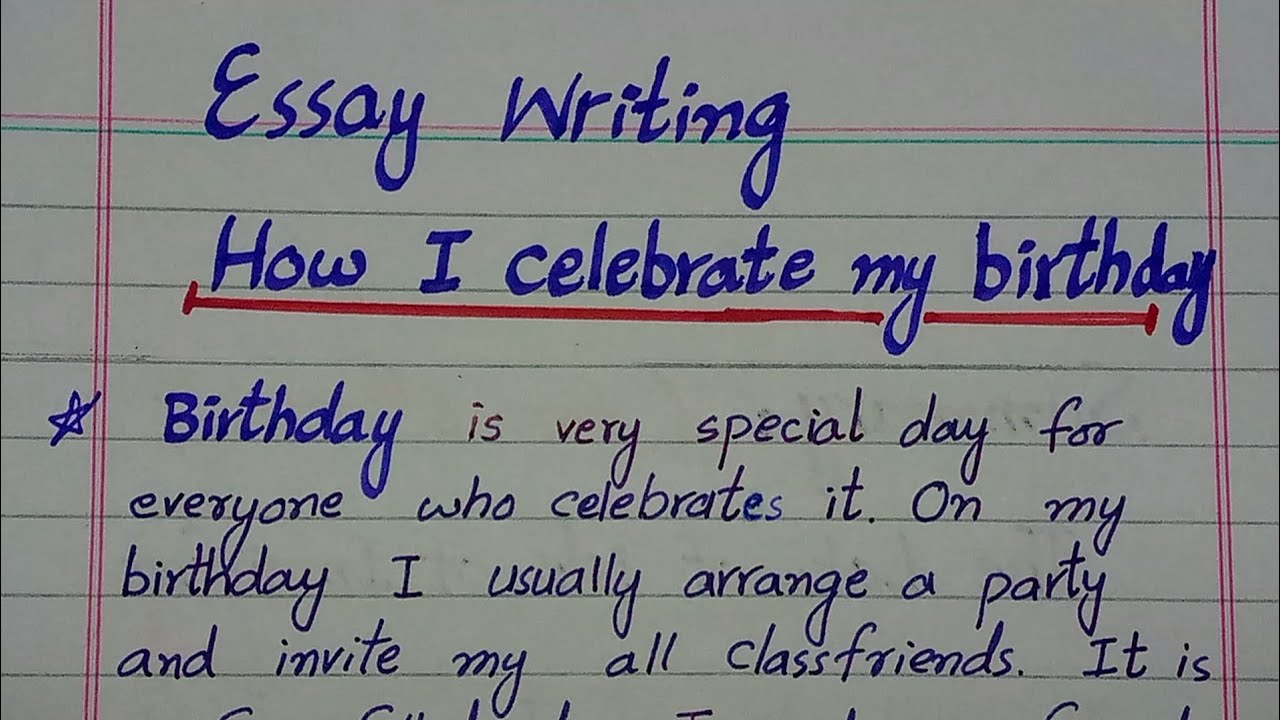 Essay Writing
How I celebrate my birthday
☆ Birthday is very special day for
everyone who celebrates it. On my
birthday I usually arrange a party
and invite my all classfriends. It is